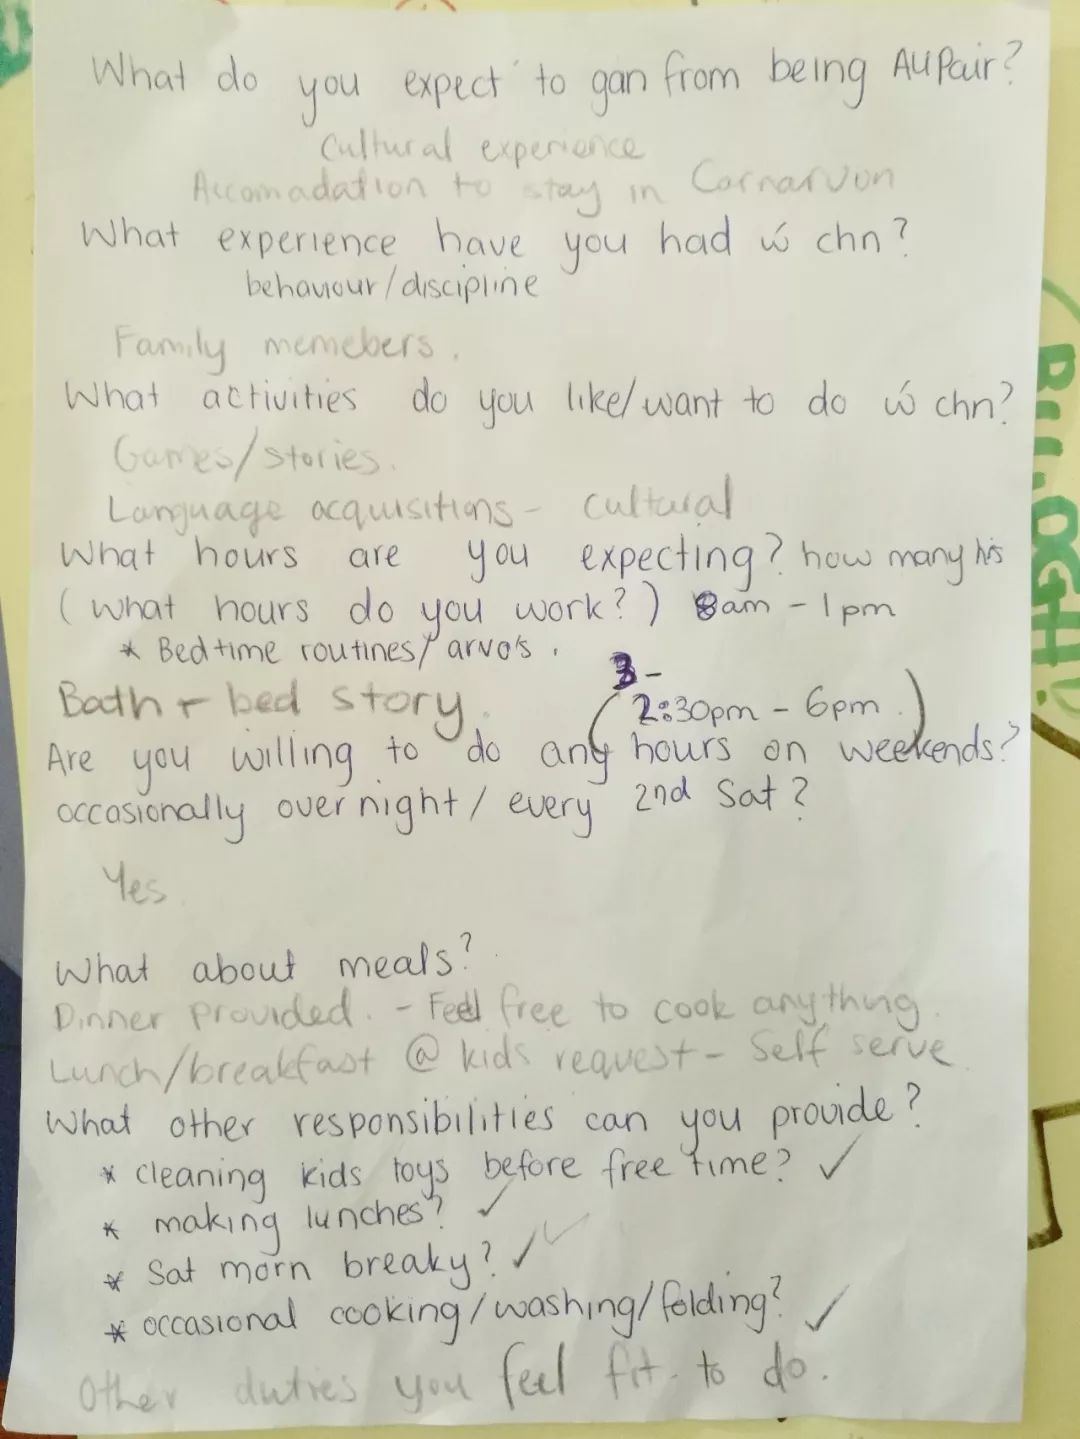 What do you expect to gan from being AuPair?
Cultural experience
Accomadation to stay in Carnarvon
What experience have you had ẃ chn?
behaviour/discipline
Family memebers.
What activities do you like/want to do ẃ chn?
Games/stories.
Language acquisitions - cultural
What hours are you expecting? how many hrs
(what hours do you work?) 8am - 1pm
* Bedtime routines/arvo's.
3-
Bath + bed story. (2:30pm - 6pm.)
Are you willing to do any hours on weekends?
occasionally overnight/every 2nd Sat?
Yes.
What about meals?
Dinner provided. - Feel free to cook anything.
Lunch/breakfast @ kids request - Self serve
What other responsibilities can you provide?
* cleaning kids toys before free time? ✓
* making lunches? ✓
* Sat morn breaky? ✓ ✓
* occasional cooking/washing/folding? ✓
Other duties you feel fit to do.